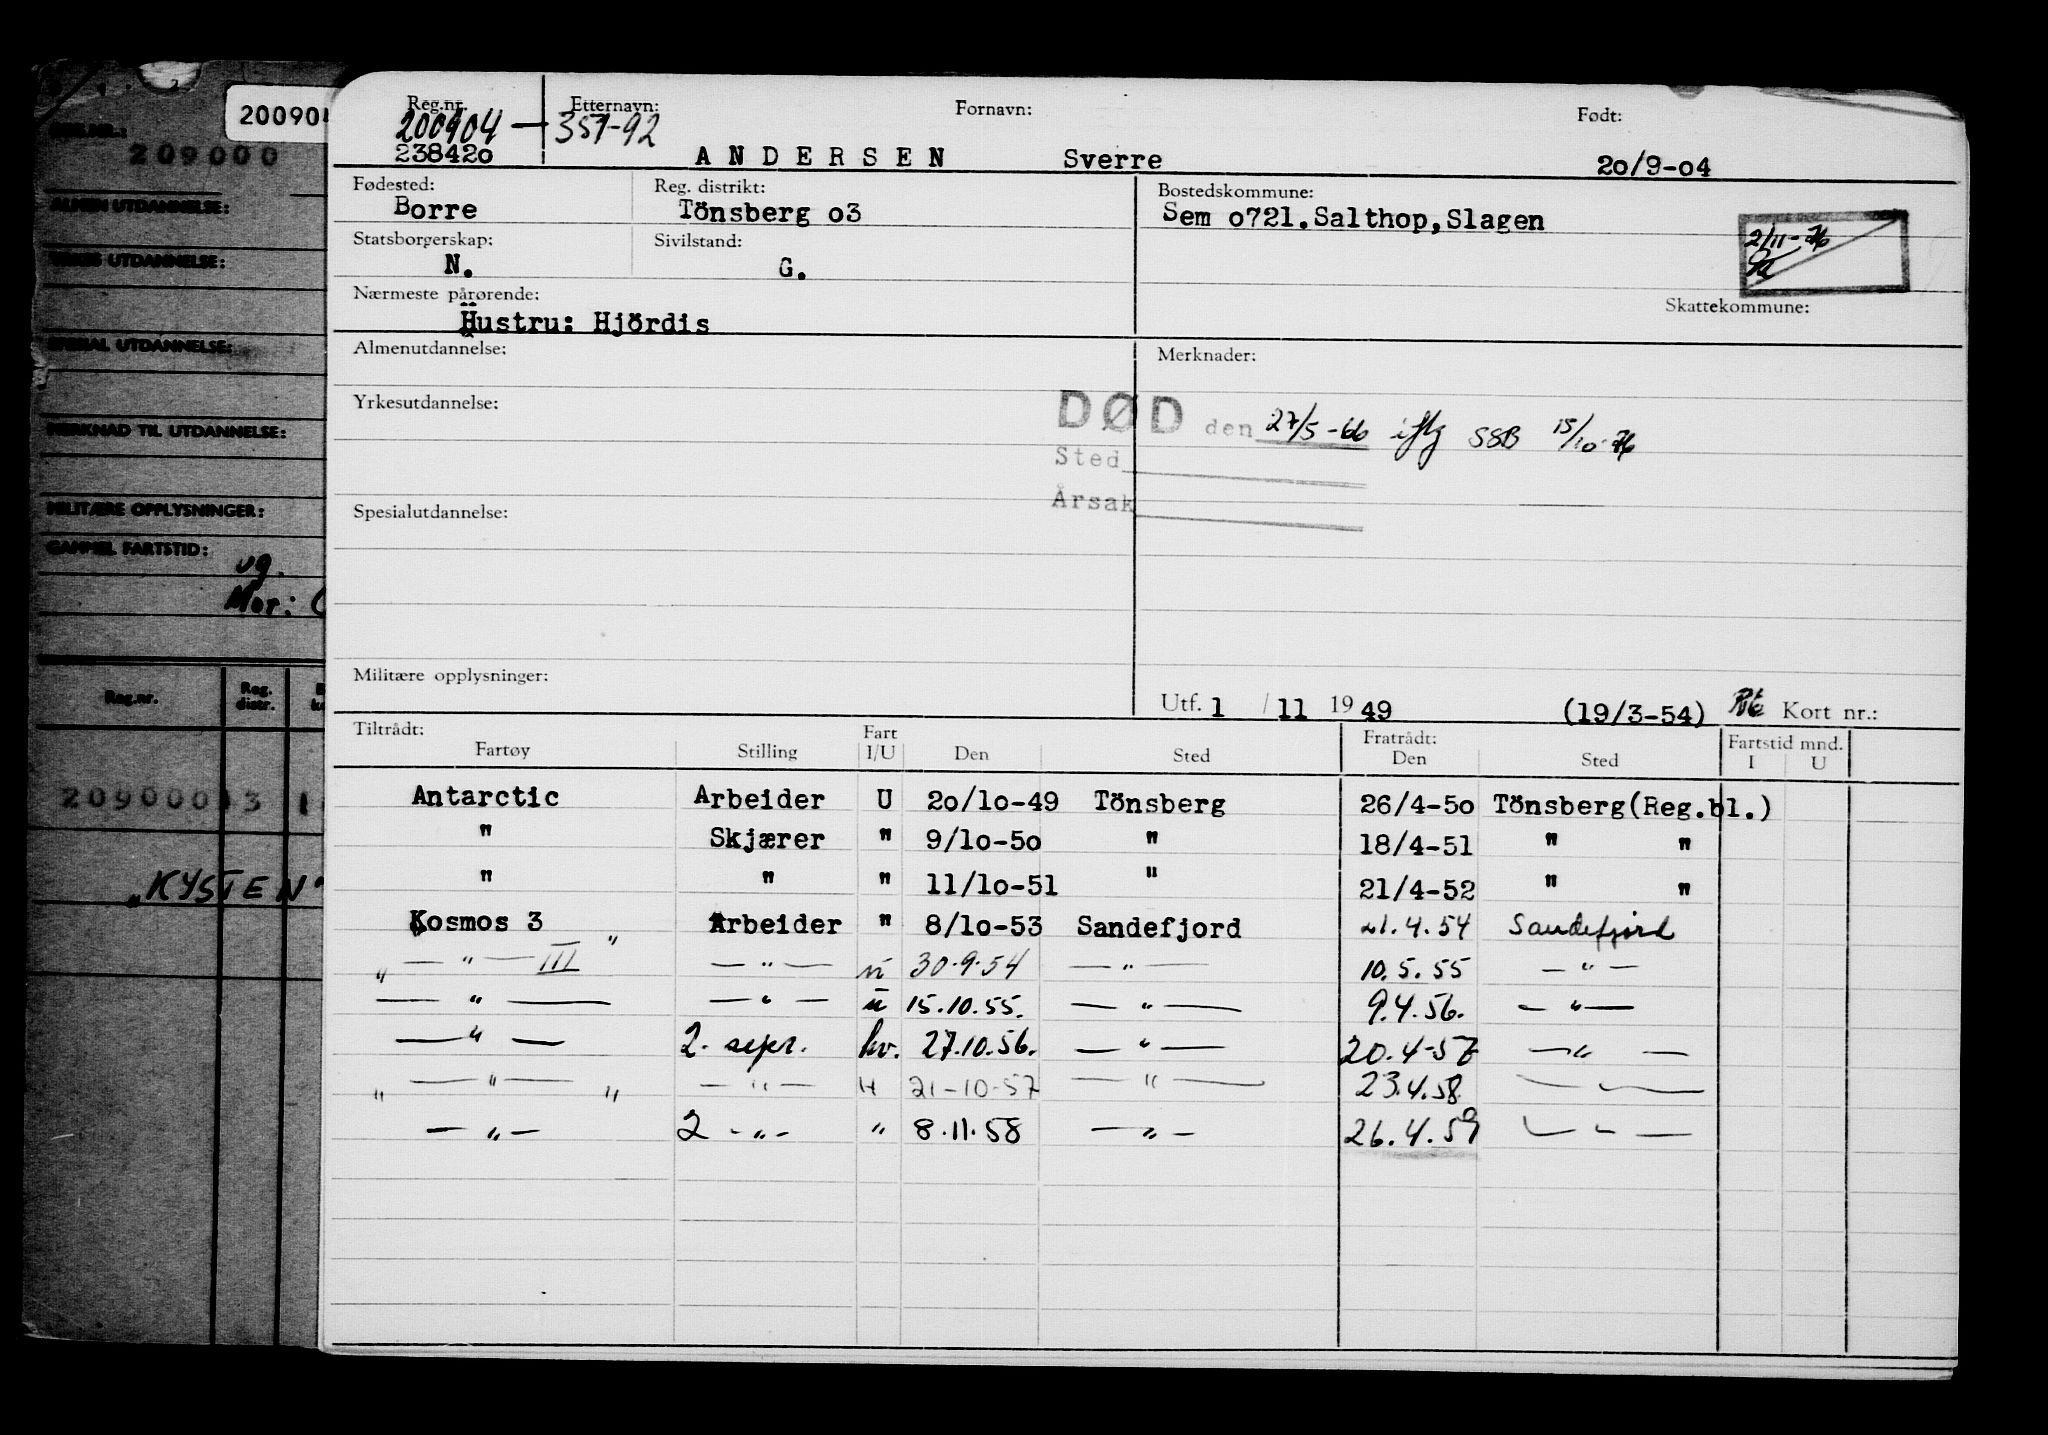 20090
REG.NR.:
209000
ALMEN UTDANNELSE:
YRKES UTDANNELSE:
SPESIAL UTDANNELSE:
MERKNAD TIL UTDANNELSE:
MILITÆRE OPPLYSNINGER:
GAMMEL FARTSTID:
ug.
Mor:
Reg.nr. Reg. distr.
209000 3 1
"KYSTEN"
Reg.nr. Etternavn: Fornavn: Født:
200904 — 357-92
238420 ANDERSEN Sverre 20/9-04
Fødested: Reg. distrikt: Bostedskommune:
Borre Tönsberg o3 Sem o721.Salthop,Slagen
Statsborgerskap: Sivilstand: 2/11-76
N. G.
Nærmeste pårørende: Skattekommune:
Hustru: Hjördis
Almenutdannelse: Merknader:
Yrkesutdannelse: DØD den 27/5-66 iflg SSB 15/10-76
Sted
Spesialutdannelse: Årsak
Militære opplysninger:
Utf. 1 / 11 19 49 (19/3-54) Kort nr.:
Tiltrådt: Fart Fratrådt: Fartstid mnd.
Fartøy Stilling I/U Den Sted Den Sted I U
Antarctic Arbeider U 20/10-49 Tönsberg 26/4-50 Tönsberg(Reg.bl.)
" Skjærer " 9/10-50 " 18/4-51 " "
" " " 11/10-51 " 21/4-52 " "
Kosmos 3 Arbeider " 8/10-53 Sandefjord 21.4.54 Sandefjord
" — " — III " — " — 30.9.54 — " — 10.5.55 — " —
— " — — " — u 15.10.55. — " — 9.4.56. — " —
— " — 2. sepr. hv. 27.10.56. — " — 20.4-57 — " —
" — " — " — " — H 21-10-57 — " — 23.4.58 — " —
— " — 2 - " - " 8.11.58 — " — 26.4.59 — " —